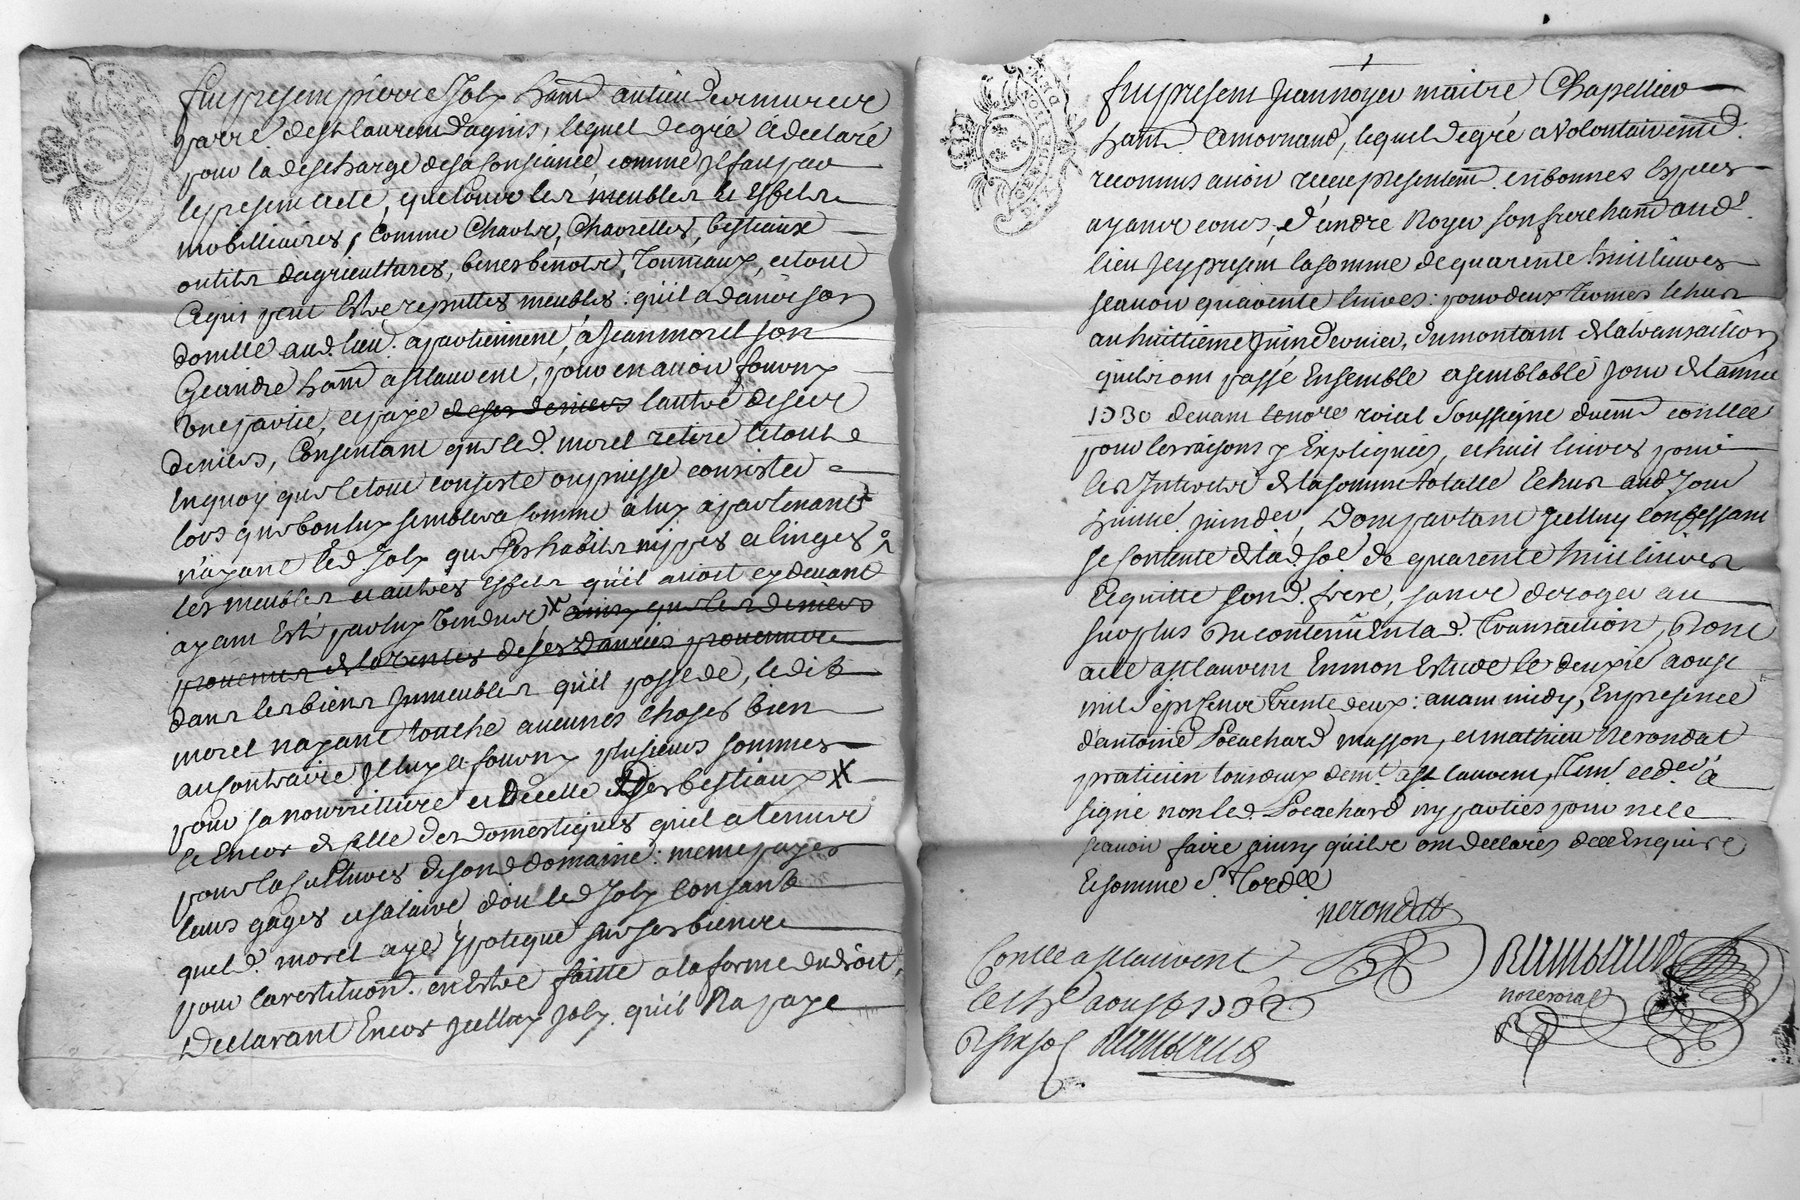 fut present pierre Joly hant au lieu de
parre de st laurent dagnis, lequel de gré a declaré
pour la descharge de sa consiance, comme Il fait par
le present acte, que tous les meubles & effets
mobilliaires, comme Chars, Charrettes, bestiaux
outils dagricultures, benes benots, Tonneaux, et tout
Ce qui peut Estre reputtés meubles: qu'il a dans son
domille aud. lieu. apartiennent, a Jean morel son
Geandre hant a st laurent, pour en auoir fourny
Une partie, et payé de ses deniers l'autre de ses
deniers, Consentant que led. morel retire le tout
En quoy que le tout consiste ou puisse consister
lors que bon luy semblera comme a luy apartenant
n'ayant led Joly que ses habits nipes et linges
les meubles et autres effets qu'il auoit cy deuant
ayant Esté par luy Vendus ainsy que les deniers
prouenus de la Vente de ses danrées
dans les biens Immeubles qu'il possede, ledit
morel nayant touché aucunes choses bien
au contraire Il luy a fourny plusieurs sommes
pour sa nourriture et de celle de ses bestiaux
& Encor de celle des domestiques qu'il a tenus
pour la cultures de son d domaine: meme payer
leurs gages et salaire, dont led Joly consant
que led. morel aye ypoteque sur ses biens
pour la restitution. en Estre faitte a la forme du droit,
Declarant Encor Icelluy Joly. qu'il N'a paye
fut present Jean noyer maitre Chapellier
hant a mornand, lequel de gré a Volontairement
reconnus auoir receu presentement en bonnes Especes
ayant cours, d'andré Noyer son frere hant aud.
lieu Icy present la somme de quarente huit liures
scauoir quarente liures: pour deux termes Echus
au huittieme Juin dernier, du montant de la transaction
qu'ils ont passé Ensemble a semblable Jour de l'année
1730 devant le nore roial Soussigné duement conllée
pour les raisons y Expliquées, et huit liures pour
les Interets de la somme totalle Echus aud Jour
huitie. juin der, Dont partant Icelluy confessant
se contente de lad. soe de quarente huit liures
& quitte son d. frere, sans deroger au
surplus du contenû En la d. transaction, Dont
acte a st laurent En mon Estude le deuxie aoust
mil sept cent trente deux: auant midy, En presence
d'antoine Pocachard masson, et mathieu Nerondat
praticien tous deux demt a st laurent, Tem
signé non led Pocachard ny parties pour ne le
scauoir faire ainsy qu'ils ont declarés de ce Enquis
& sommé St Lordce
nerondatt
Conllé a st laurent
le aoust 1732